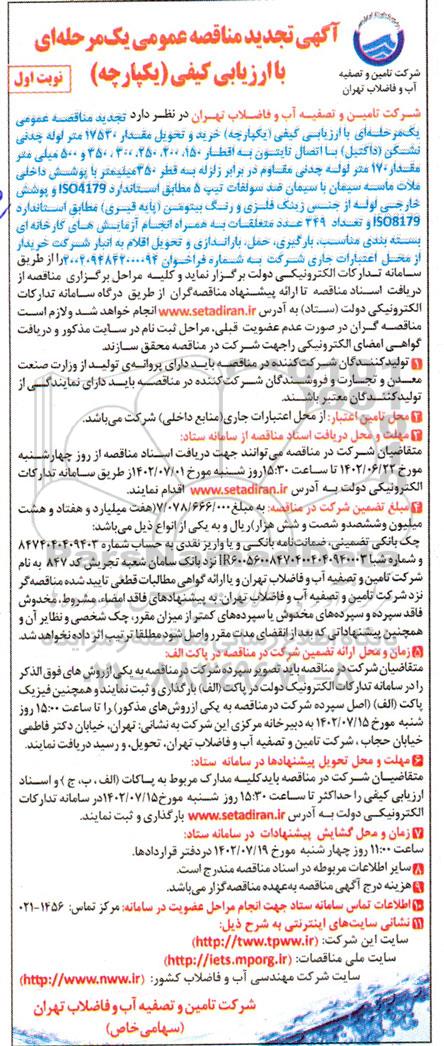 آگهی تجدید مناقصه عمومی یک‌مرحله‌ای
با ارزیابی کیفی (یکپارچه)
نوبت اول
شرکت تامین و تصفیه
آب و فاضلاب تهران
شرکت تامیـن و تصفیـه آب و فاضـلاب تهـران در نظـر دارد تجدید مناقصـه عمومی
یک‌مرحله‌ای با ارزیابی کیفی (یکپارچه) خرید و تحویل مقدار ۱۷۵۳۰ متر لوله چدنی
نشکن (داکتیل) با اتصال تایتون به اقطار ۱۵۰، ۲۰۰، ۲۵۰، ۳۰۰، ۳۵۰ و ۵۰۰ میلی متر
مقدار ۱۷۰ متر لوله چدنی مقاوم در برابر زلزله به قطر ۳۵۰میلیمتر با پوشش داخلی
ملات ماسه سیمان با سیمان ضد سولفات تیپ ۵ مطابق استاندارد ISO4179 و پوشش
خارجی لوله از جنس زینک فلزی و رنگ بیتومن (پایه قیری) مطابق استاندارد
ISO8179 و تعداد ۳۴۹ عدد متعلقات به همراه انجام آزمایش های کارخانه ای
بسته بندی مناسب، بارگیری، حمل، باراندازی و تحویل اقلام به انبار شرکت خریدار
از محل اعتبارات جاری شرکت به شماره فراخوان ۲۰۰۲۰۹۴۸۴۲۰۰۰۰۹۴را از طریق
سامانه تدارکات الکترونیکی دولت برگزار نماید و کلیه مراحل برگزاری مناقصه از
دریافت اسناد مناقصه تا ارائه پیشنهاد مناقصه‌گران از طریق درگاه سامانه تدارکات
الکترونیکی دولت (ستاد) به آدرس www.setadiran.ir انجام خواهد شد ولازم است
مناقصه گـران در صورت عدم عضویت قبلی، مراحل ثبت نام در سایت مذکور و دریافت
گواهی امضای الکترونیکی راجهت شرکت در مناقصه محقق سازند.
۱ تولیدکنندگان شرکت‌کننده در مناقصه باید دارای پروانه‌ی تولید از وزارت صنعت
معـدن و تجـارت و فروشـندگان شرکت‌کننده در مناقصـه بایـد دارای نمایندگی از
تولیدکنندگان معتبر باشند.
۲ محل تامین اعتبار: از محل اعتبارات جاری(منابع داخلی) شرکت می‌باشد.
۳ مهلت و محل دریافت اسناد مناقصه از سامانه ستاد:
متقاضیان شرکت در مناقصه می‌توانند جهت دریافت اسناد مناقصه از روز چهارشنبه
مورخ ۱۴۰۲/۰۶/۲۲ تا ساعت ۱۵:۳۰روز شنبه مورخ ۱۴۰۲/۰۷/۰۱از طریق سامانه تدارکات
الکترونیکی دولت به آدرس www.setadiran.ir اقدام نمایند.
۴ مبلغ تضمین شرکت در مناقصه: به مبلغ ۷/۰۷۸/۶۶۶/۰۰۰(هفت میلیارد و هفتاد و هشت
میلیون وششصدو شصت و شش هزار)ریال و به یکی از انواع ذیل می‌باشد:
چک بانکی تضمینی، ضمانت‌نامه بانکـی و یا واریز نقدی به حساب شماره
نزد بانک سامان شعبه تجریش کد ۸۴۷ به نام
شرکت تامین و تصفیه آب و فاضلاب تهران و یا ارائه گواهی مطالبات قطعی تایید شده مناقصه‌گر
نزد شرکت تامین و تصفیه آب و فاضلاب تهران. به پیشنهادهای فاقد امضاء، مشروط، مخدوش
فاقد سپرده و سپرده‌های مخدوش یا سپرده‌های کمتر از میزان مقرر، چک شخصی و نظایر آن و
همچنین پیشنهاداتی که بعد از انقضای مدت مقرر واصل شود مطلقا ترتیب اثر داده نخواهد شد.
۵ زمان و محل ارائه تضمین شرکت در مناقصه در پاکت الف:
متقاضیان شرکت در مناقصه باید تصویر سپرده شرکت در مناقصه به یکی ازروش های فوق الذکر
را در سامانه تدارکات الکترونیک دولت در پاکت (الف) بارگذاری و ثبت نمایند و همچنین فیزیک
پاکت (الف) (اصل سپرده شرکت درمناقصه به یکی ازروش‌های مذکور) را تا ساعت ۱۵:۰۰ روز
شنبه مورخ ۱۴۰۲/۰۷/۱۵ به دبیرخانه مرکزی این شرکت به نشانی: تهران، خیابان دکتر فاطمی
خیابان حجاب، شرکت تامین و تصفیه آب و فاضلاب تهران، تحویل، و رسید دریافت نمایند.
۶ مهلت و محل تحویل پیشنهادها در سامانه ستاد:
متقاضیان شرکت در مناقصه باید کلیه مدارک مربوط به پاکات (الف، ب، ج) و اسناد
ارزیابی کیفی را حداکثر تا ساعت ۱۵:۳۰ روز شنبه مورخ ۱۴۰۲/۰۷/۱۵در سامانه تدارکات
الکترونیکـی دولت بـه آدرس www.setadiran.ir بارگذاری و ثبت نمایند.
۷ زمان و محل گشایش پیشنهادات در سامانه ستاد:
ساعت ۱۱:۰۰ روز چهار شنبه مورخ ۱۴۰۲/۰۷/۱۹ دردفتر قراردادها.
۸ سایر اطلاعات مربوطه در اسناد مناقصه مندرج است.
۹ هزینه درج آگهی مناقصه به‌عهده مناقصه‌گزار می‌باشد.
۱۰ اطلاعات تماس سامانه ستاد جهت انجام مراحل عضویت در سامانه: مرکز تماس: ۱۴۵۶-۰۲۱
۱۱ نشانی سایت‌های اینترنتی به شرح ذیل:
سایت این شرکت: (http://tww.tpww.ir)
سایت ملی مناقصات: (http://iets.mporg.ir)
سایت شرکت مهندسی آب و فاضلاب کشور: (http://www.nww.ir)
شرکت تامین و تصفیه آب و فاضلاب تهران
(سهامی خاص)